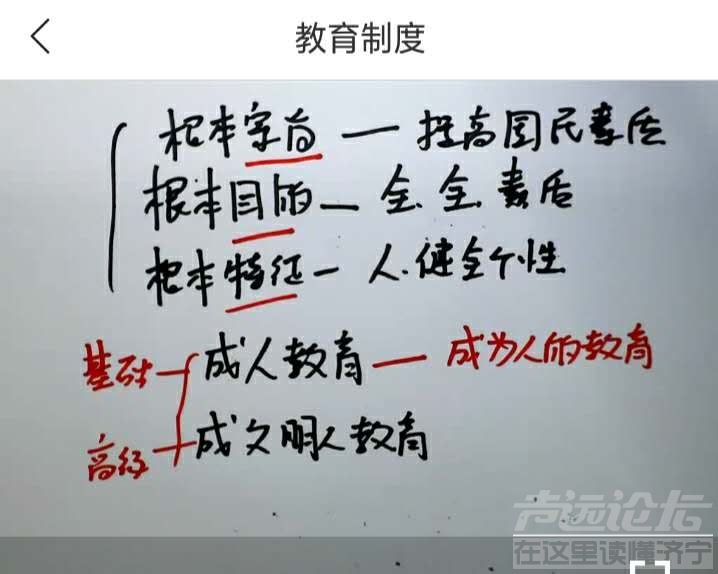 教育制度
根本宗旨 — 提高国民素质
根本目的 — 全.全.素质
根本特征 — 人.健全个性
基础 成人教育 — 成为人的教育
高级 成文明人教育
声远论坛
在这里读懂济宁